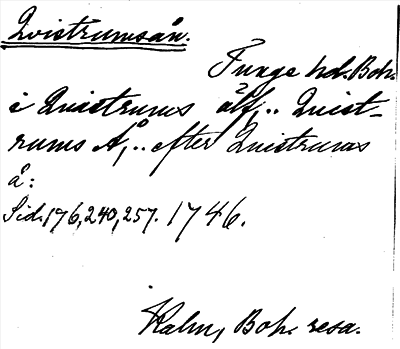 Qvistrumsån.
Tunge hd. Boh.
i Quistrums älf, .. Quist-
rums Å, .. efter Quistrums
å:
Sid. 176, 240, 257. 1746.
Kalm, Boh. resa.